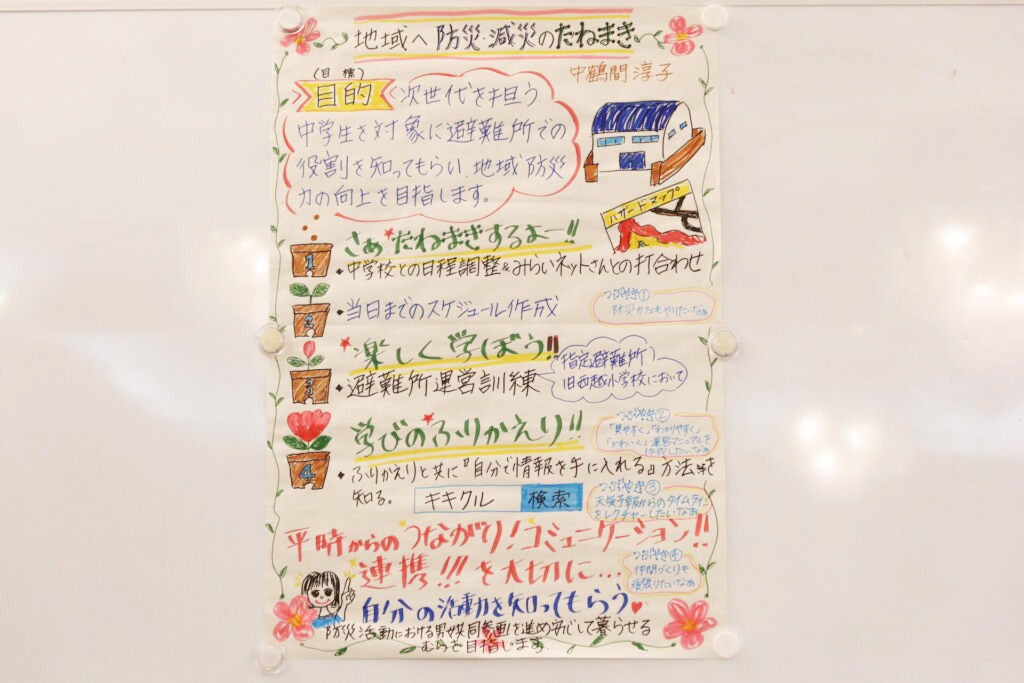 地域へ防災・減災のたねまき
中鶴間淳子
(目標)
目的 次世代を担う
中学生を対象に避難所での
役割を知ってもらい、地域防災
力の向上を目指します。
ハザードマップ
さぁ たねまきするよー!!
1
・中学校との日程調整&みらいネットさんとの打合わせ
2
・当日までのスケジュール作成
つぶやき①
防災カフェもやりたいなぁ
楽しく学ぼう!!
3
・避難所運営訓練
指定避難所
旧西越小学校において
学びのふりかえり!!
つぶやき②
「見やすく」「わかりやすく」
「かわいく」運営マニュアルを
作成したいなぁ
4
・ふりかえりと共に『自分で情報を手に入れる』方法等を
知る。 キキクル 検索
つぶやき③
天気予報からのタイムライン
をレクチャーしたいなぁ
平時からのつながり!コミュニケーション!!
連携!!!を大切に...
つぶやき④
仲間づくりも
頑張りたいなぁ
自分の活動を知ってもらう
防災活動における男女共同参画を進め安心して暮らせる
むらを目指します。